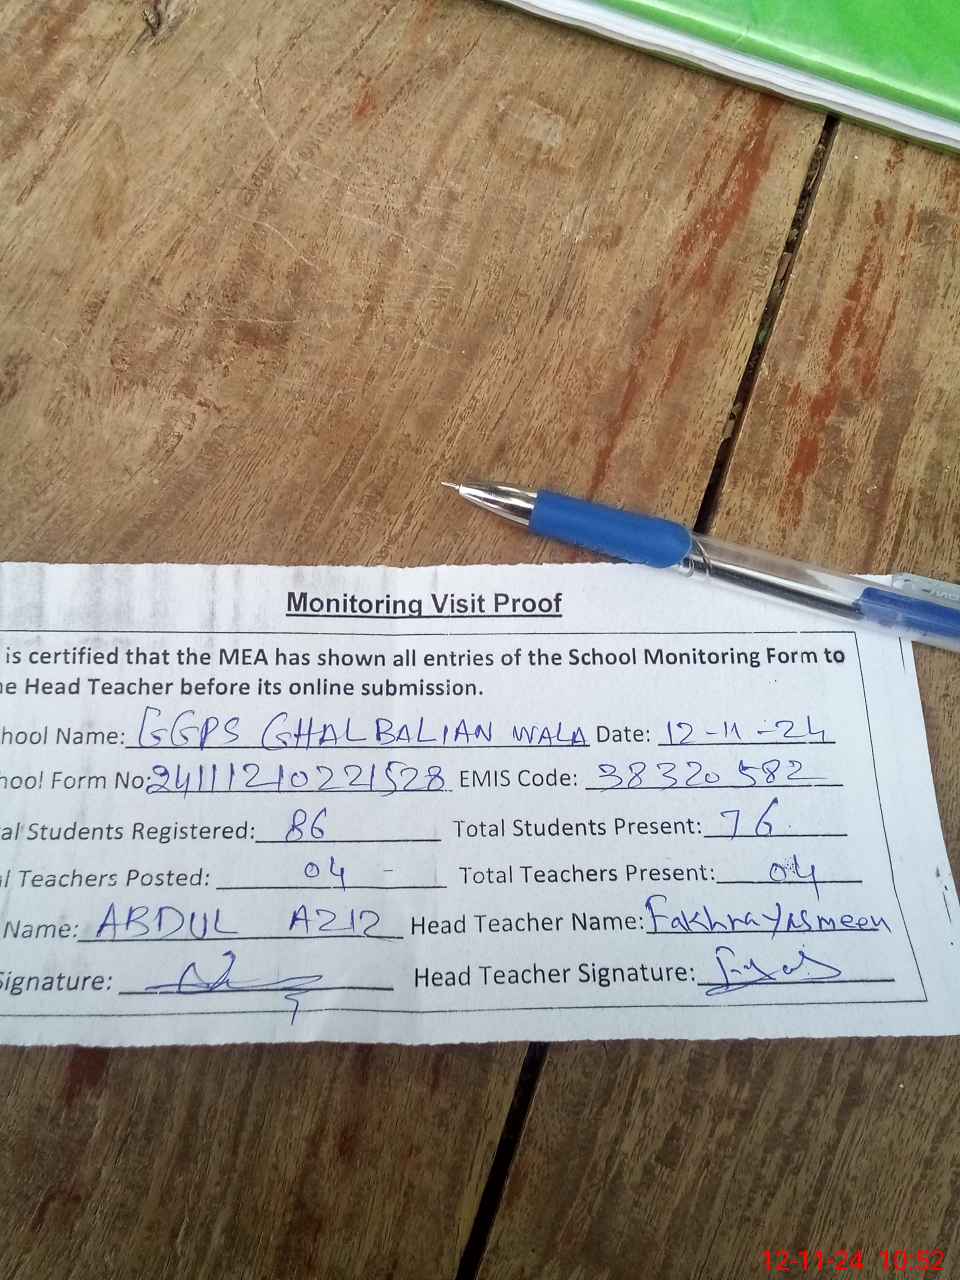 Monitoring Visit Proof
is certified that the MEA has shown all entries of the School Monitoring Form to
he Head Teacher before its online submission.
hool Name: GGPS GHALBALIAN WALA Date: 12-11-24
hool Form No: 241111210221528 EMIS Code: 38320582
al Students Registered: 86 Total Students Present: 76
l Teachers Posted: 04 - Total Teachers Present: 04
Name: ABDUL AZIZ Head Teacher Name: Fakhra Yasmeen
Signature: Head Teacher Signature:
12-11-24 10:52